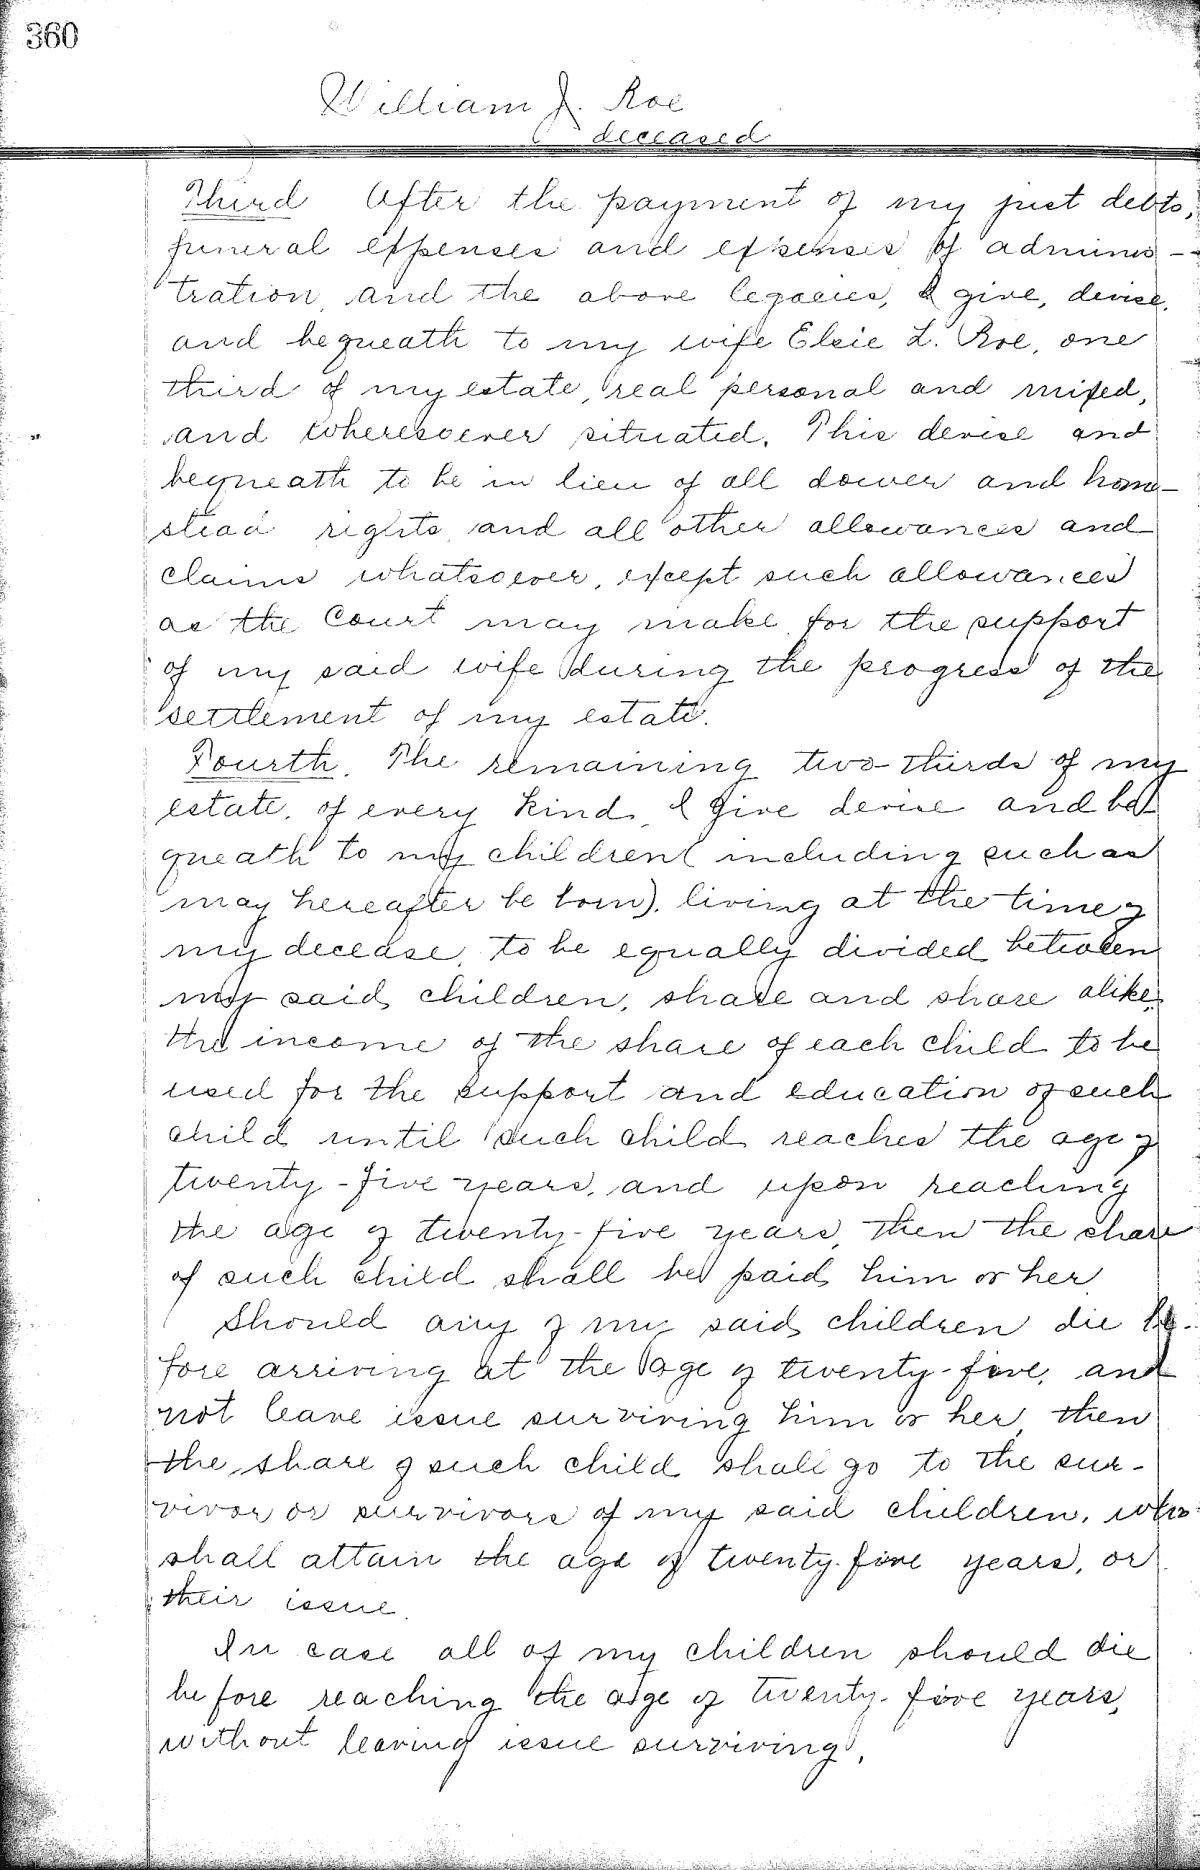 360
William J. Roe
deceased
Third After the payment of my just debts,
funeral expenses and expenses of adminis-
tration, and the above legacies, I give, devise,
and bequeath to my wife Elsie L. Roe, one
third of my estate, real personal and mixed,
and wheresoever situated. This devise and
bequeath to be in lieu of all dower and home-
stead rights and all other allowances and
claims whatsoever, except such allowances
as the Court may make for the support
of my said wife during the progress of the
settlement of my estate.
Fourth. The remaining two-thirds of my
estate, of every kind, I give devise and be-
queath to my children (including such as
may hereafter be born), living at the time of
my decease, to be equally divided between
my said children, share and share alike,
the income of the share of each child to be
used for the support and education of such
child until such child reaches the age of
twenty-five years, and upon reaching
the age of twenty-five years, then the share
of such child shall be paid him or her
Should any of my said children die be-
fore arriving at the age of twenty-five, and
not leave issue surviving him or her, then
the share of such child shall go to the sur-
vivor or survivors of my said children, who
shall attain the age of twenty-five years, or
their issue.
In case all of my children should die
before reaching the age of twenty-five years,
without leaving issue surviving,